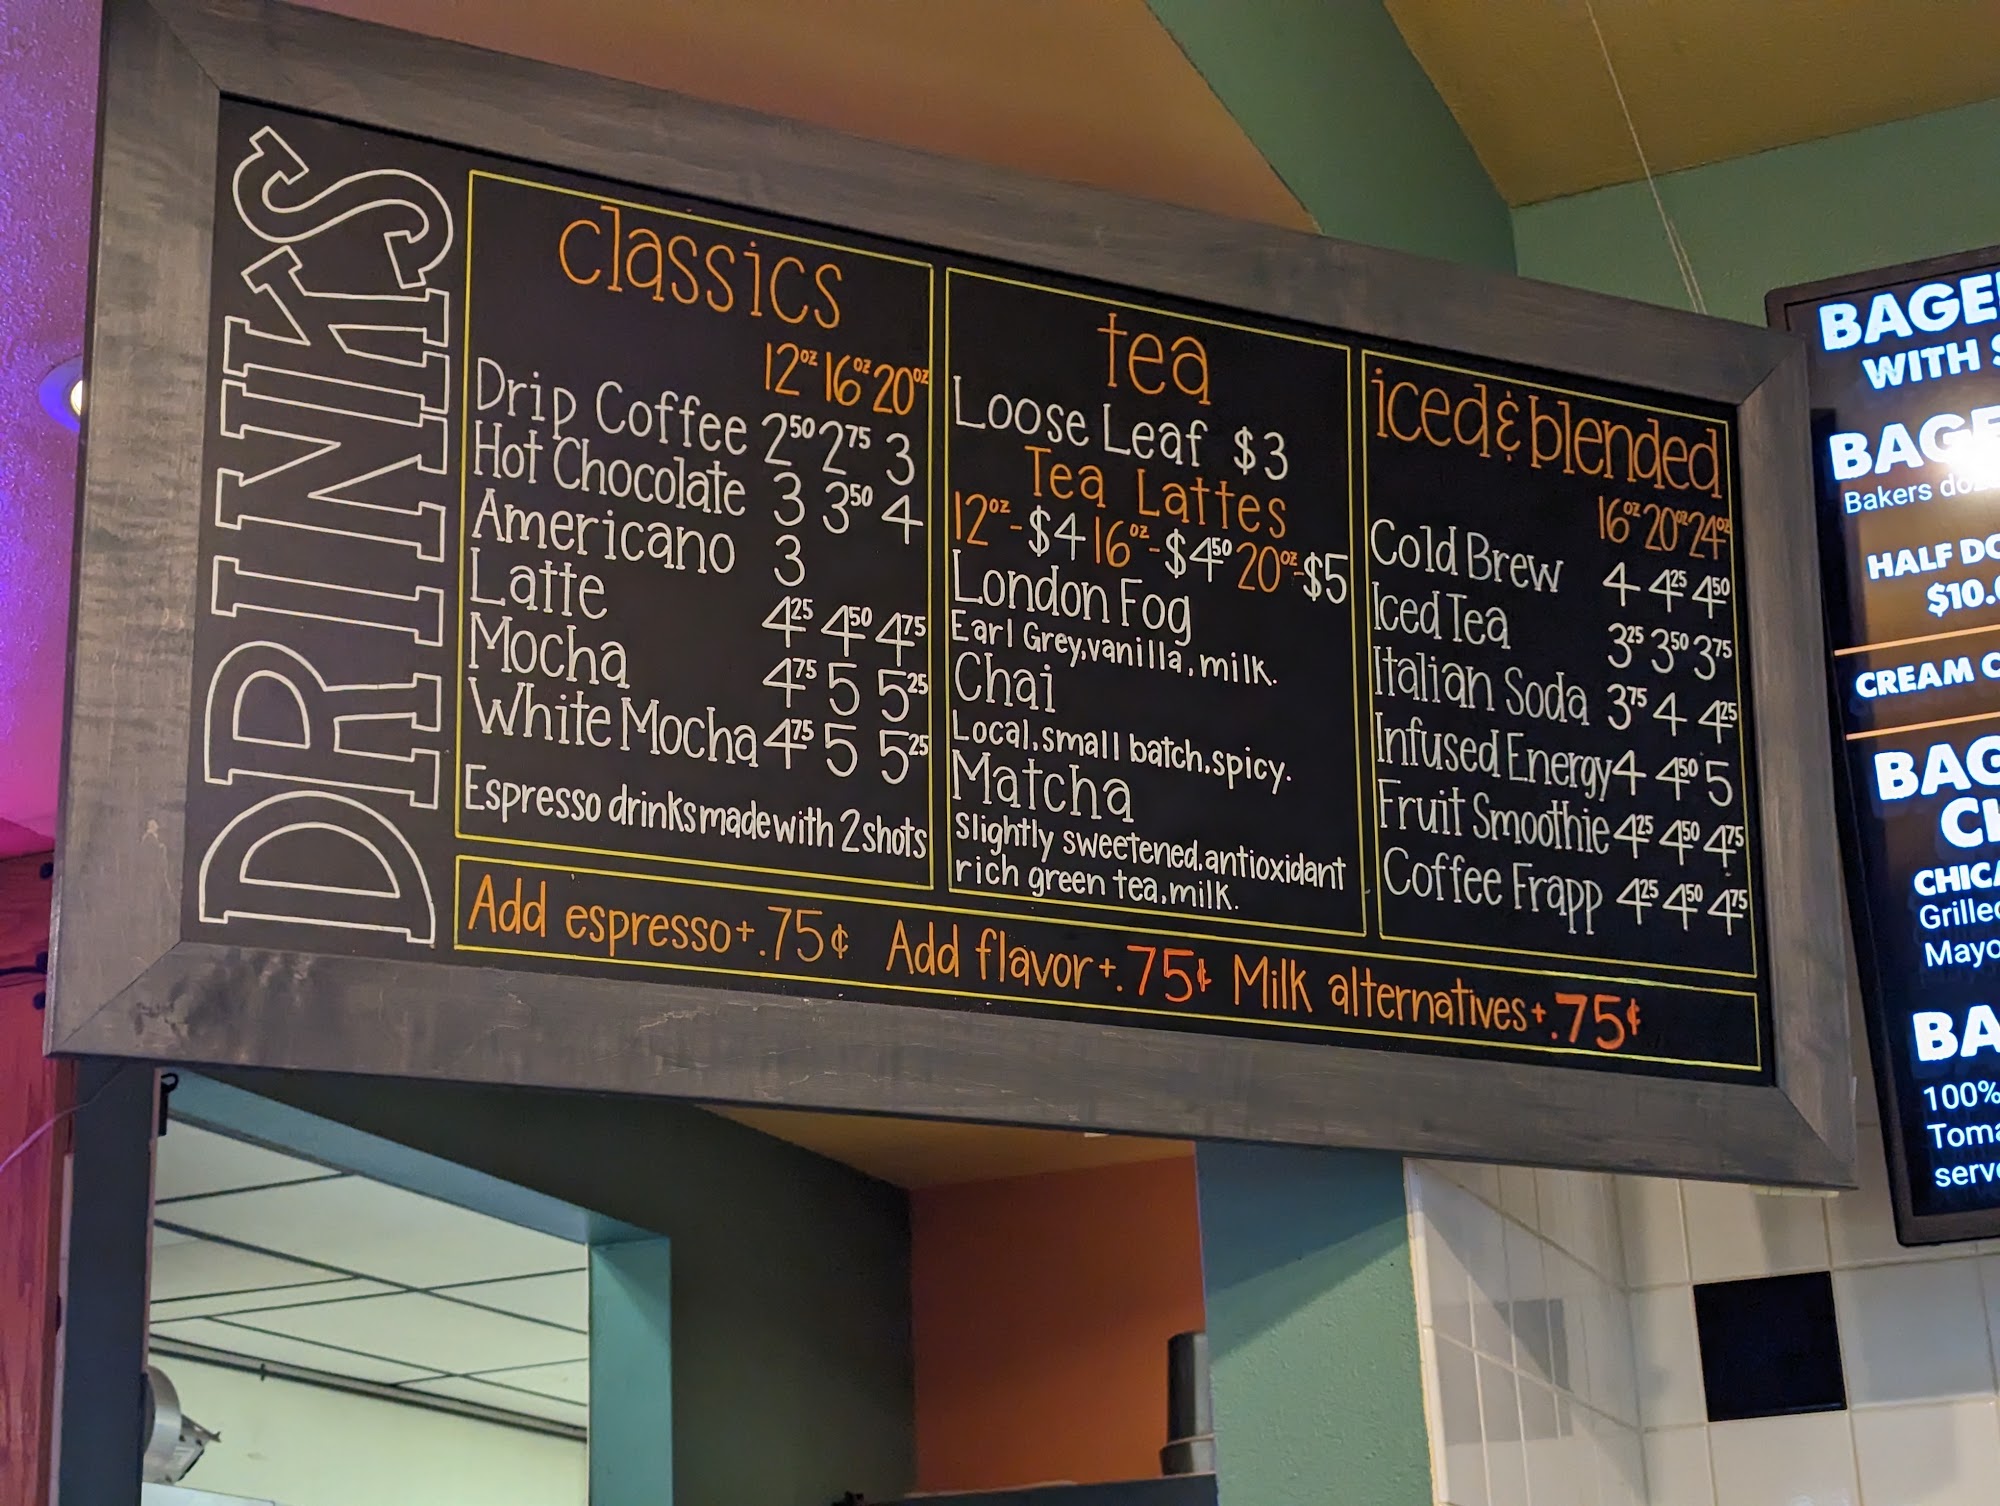 DRINKS
classics
12oz 16oz 20oz
Drip Coffee 2 50 2 75 3
Hot Chocolate 3 3 50 4
Americano 3
Latte 4 25 4 50 4 75
Mocha 4 75 5 5 25
White Mocha 4 75 5 5 25
Espresso drinks made with 2 shots
tea
Loose Leaf $3
Tea Lattes
12oz-$4 16oz-$4 50 20oz-$5
London Fog
Earl Grey, vanilla, milk.
Chai
Local, small batch, spicy.
Matcha
Slightly sweetened, antioxidant
rich green tea, milk.
iced & blended
16oz 20oz 24oz
Cold Brew 4 4 25 4 50
Iced Tea 3 25 3 50 3 75
Italian Soda 3 75 4 4 25
Infused Energy 4 4 50 5
Fruit Smoothie 4 25 4 50 4 75
Coffee Frapp 4 25 4 50 4 75
Add espresso +.75¢ Add flavor +.75¢ Milk alternatives +.75¢
WITH
Bakers
HALF
CREAM
Mayo
100%